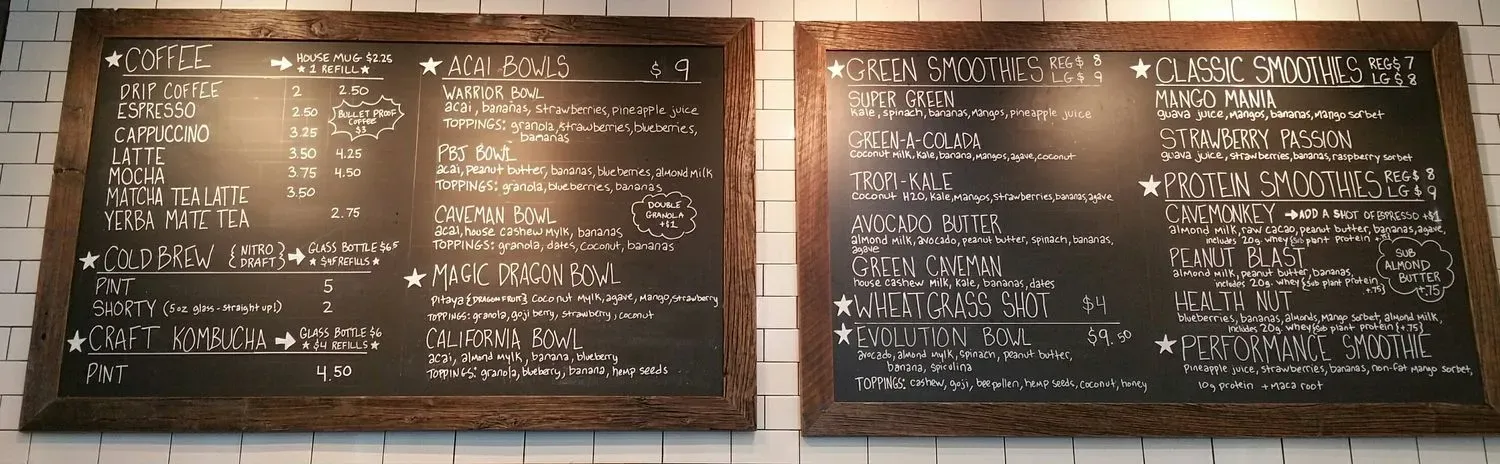 ★ COFFEE → HOUSE MUG $2.25
★ 1 REFILL ★
DRIP COFFEE 2 2.50
ESPRESSO 2.50
BULLET PROOF
COFFEE
$3
CAPPUCCINO 3.25
LATTE 3.50 4.25
MOCHA 3.75 4.50
MATCHA TEA LATTE 3.50
YERBA MATE TEA 2.75
★ COLD BREW {NITRO DRAFT} → GLASS BOTTLE $65
★ $4 REFILLS ★
PINT 5
SHORTY (5oz glass - straight up!) 2
★ CRAFT KOMBUCHA → GLASS BOTTLE $6
★ $4 REFILLS ★
PINT 4.50
★ ACAI BOWLS $9
WARRIOR BOWL
acai, bananas, strawberries, pineapple juice
TOPPINGS: granola, strawberries, blueberries,
bananas
PBJ BOWL
acai, peanut butter, bananas, blueberries, almond milk
TOPPINGS: granola, blueberries, bananas
DOUBLE
GRANOLA
+$1
CAVEMAN BOWL
acai, house cashew mylk, bananas
TOPPINGS: granola, dates, coconut, bananas
★ MAGIC DRAGON BOWL
Pitaya {DRAGON FRUIT} coconut mylk, agave, mango, strawberry
TOPPINGS: granola, goji berry, strawberry, coconut
CALIFORNIA BOWL
acai, almond mylk, banana, blueberry
TOPPINGS: granola, blueberry, banana, hemp seeds
★ GREEN SMOOTHIES REG $ 8
LG $ 9
SUPER GREEN
kale, spinach, bananas, mangos, pineapple juice
GREEN-A-COLADA
Coconut milk, kale, banana, mangos, agave, coconut
TROPI-KALE
Coconut H2O, kale, mangos, strawberries, bananas, agave
AVOCADO BUTTER
almond milk, avocado, peanut butter, spinach, bananas,
agave
GREEN CAVEMAN
house cashew milk, kale, bananas, dates
★ WHEATGRASS SHOT $4
★ EVOLUTION BOWL $9.50
avocado, almond mylk, spinach, peanut butter,
banana, spirulina
TOPPINGS: cashew, goji, bee pollen, hemp seeds, coconut, honey
★ CLASSIC SMOOTHIES REG $ 7
LG $ 8
MANGO MANIA
guava juice, mangos, bananas, mango sorbet
STRAWBERRY PASSION
guava juice, strawberries, bananas, raspberry sorbet
★ PROTEIN SMOOTHIES REG $ 8
LG $ 9
CAVEMONKEY → ADD A SHOT OF ESPRESSO +$1
almond milk, raw cacao, peanut butter, bananas, agave,
includes 20g. whey {sub plant protein
PEANUT BLAST
almond milk, peanut butter, bananas,
includes 20g. whey {sub plant protein
+.75}
SUB
ALMOND
BUTTER
+.75
HEALTH NUT
blueberries, bananas, almonds, mango sorbet, almond milk,
includes 20g. whey {sub plant protein {+.75}
★ PERFORMANCE SMOOTHIE
Pineapple juice, strawberries, bananas, non-fat mango sorbet,
10g protein + maca root